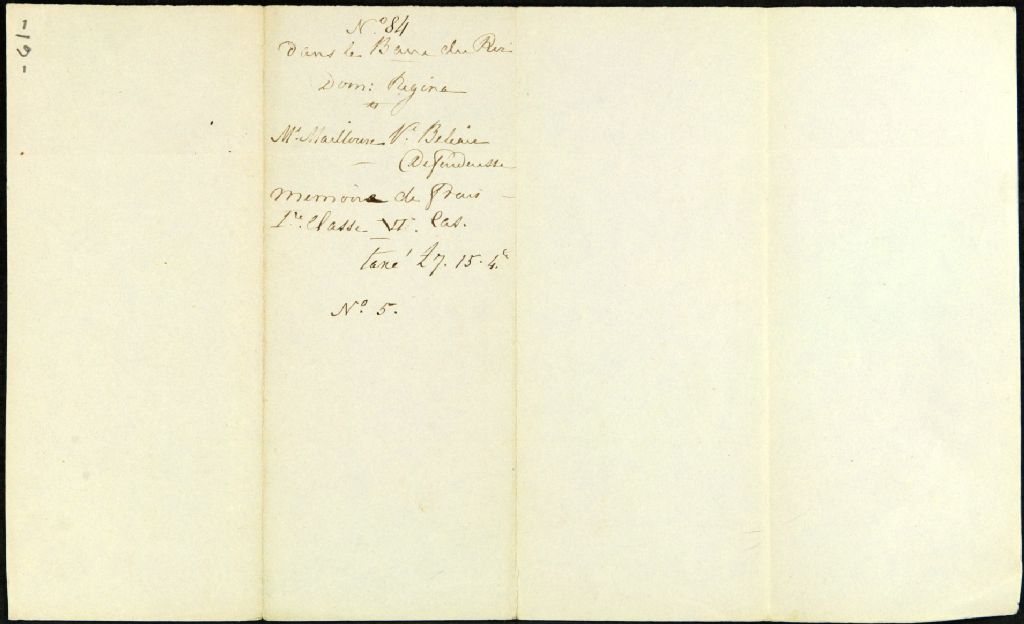 -19-
No 84
Dans le Banc du Roi
Dom: Regina
vs
Mt. Mailloux Ve. Belair
Defenderesse
Memoire de Frais
1re. Classe VIe. Cas.
taxé £7. 15. 4c
No 5.